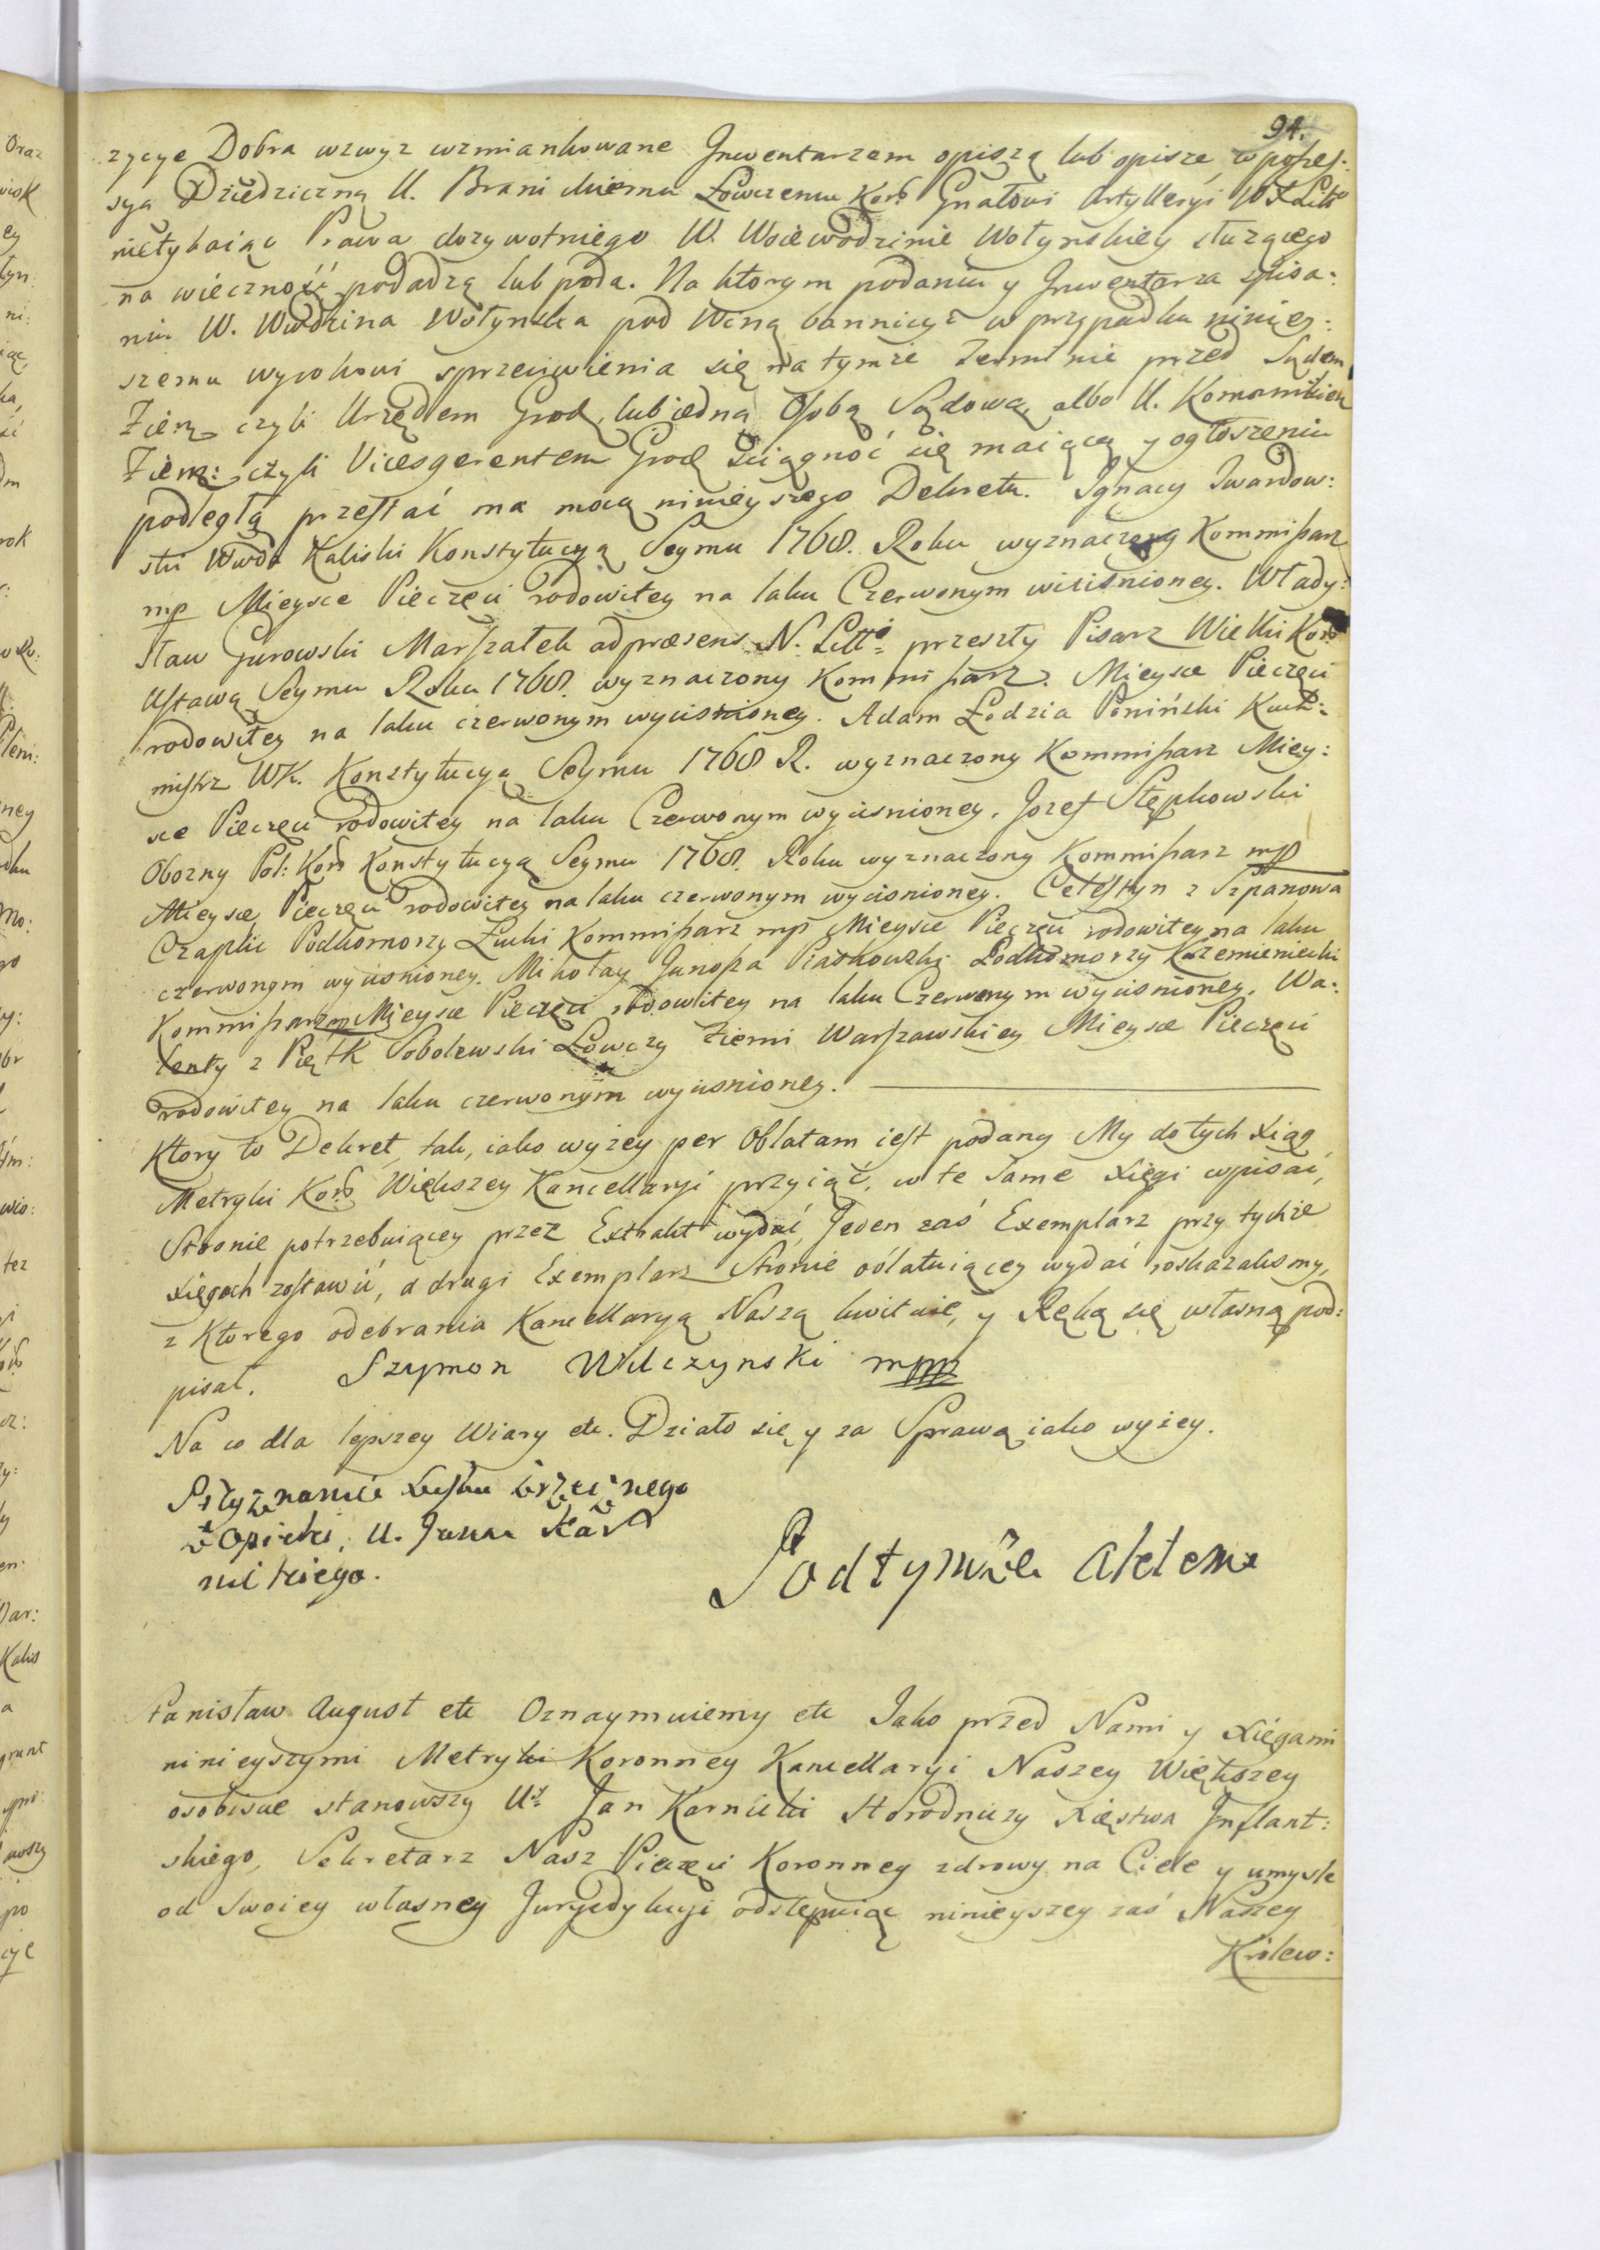 94.
zycye Dobra wzwyz wzmiankowane Inwentarzem opiszą lub opisze, w posses:
syą Dziedziczną U. Branickiemu Łowczemu Kor. Gnałowi Artylleryi WX Litt
nietykaiąc Prawa dozywotniego W. Woiewodzinie Wołynskiey słuzącego
na wieczność podadzą lub poda. Na ktorym podaniu y Inwentarza spisa:
niu W. Wwdzina Wołynska pod Winą bannicyi w przypadku niniey:
szemu wyrokowi sprzeciwienia się na tymze Terminie przed Sądem
Ziem. czyli Urzędem Grod. lub iedną Osobą Sądową albo U. Kommornikiem
Ziem: czyli Vicesgerentem Grod. sciągnoć się maiącą y ogłoszeniu
podległą przestać ma mocą ninieyszego Dekretu. Ignacy Twardow:
ski Wwda Kaliski Konstytucyą Seymu 1768. Roku wyznaczony Kommissarz
mp Mieysce Pieczęci rodowitey na laku Czerwonym wycisnioney. Włady:
sław Gurowski Marszałek ad præsens N. Litt: przeszły Pisarz Wielki Kor.
Ustawą Seymu Roku 1768. wyznaczony Kommissarz. Mieysce Pieczęci
rodowitey na laku czerwonym wycisnioney. Adam Łodzia Poniński Kuch:
mistrz WK. Konstytucyą Seymu 1768 R. wyznaczony Kommissarz Miey:
sce Pieczęci rodowitey na laku Czerwonym wycisnioney. Jozef Stępkowski
Obozny Pol: Kor. Konstytucyą Seymu 1768. Roku wyznaczony Kommissarz mp
Mieysce Pieczęci rodowitey na laku czerwonym wycisnioney. Celestyn z Szpanowa
Czaplic Podkomorzy Łucki Kommissarz mp Mieysce Pieczęci rodowitey na laku
czerwonym wycisnioney. Mikołay Junosza Piaskowski Podkomorzy Krzemieniecki
Kommissarz mp Mieysce Pieczęci rodowitey na laku Czerwonym wycisnioney. Wa:
lenty z Piętk Sobolewski Łowczy Ziemi Warszawskiey Mieysce Pieczęci
rodowitey na laku czerwonym wycisnioney.
Ktory to Dekret, tak, iako wyżey per Oblatam iest podany My do tych Xiąg
Metryki Kor. Większey Kancellaryi przyiąć, w te same Xięgi wpisać,
Stronie potrzebuiącey przez Extrakt wydać, Jeden zaś Exemplarz przy tychże
Xięgach zostawić, a drugi Exemplarz Stronie oblatuiącey wydać roskazalismy,
z Ktorego odebrania Kancellaryą Naszą kwituie, y Ręką się własną pod:
pisał. Szymon Wilczynski mpp
Na co dla lepszey Wiary etc. Działo się y za Sprawą iako wyżey.
Przyznanie
z Opieki, U. Jana Kar
nickiego.
Pod tymże Aktem
Stanisław August etc Oznaymuiemy etc Jako przed Nami y Xięgami
ninieyszymi Metryki Koronney Kancellaryi Naszey Większey
osobiscie stanowszy Ur. Jan Karnicki Horodniczy Xięstwa Inflant:
skiego, Sekretarz Nasz Pieczęci Koronney zdrowy na Ciele y umysle
od swoiey własney Jurysdykcyi odstępuiąc ninieyszey zaś Naszey
Królew: